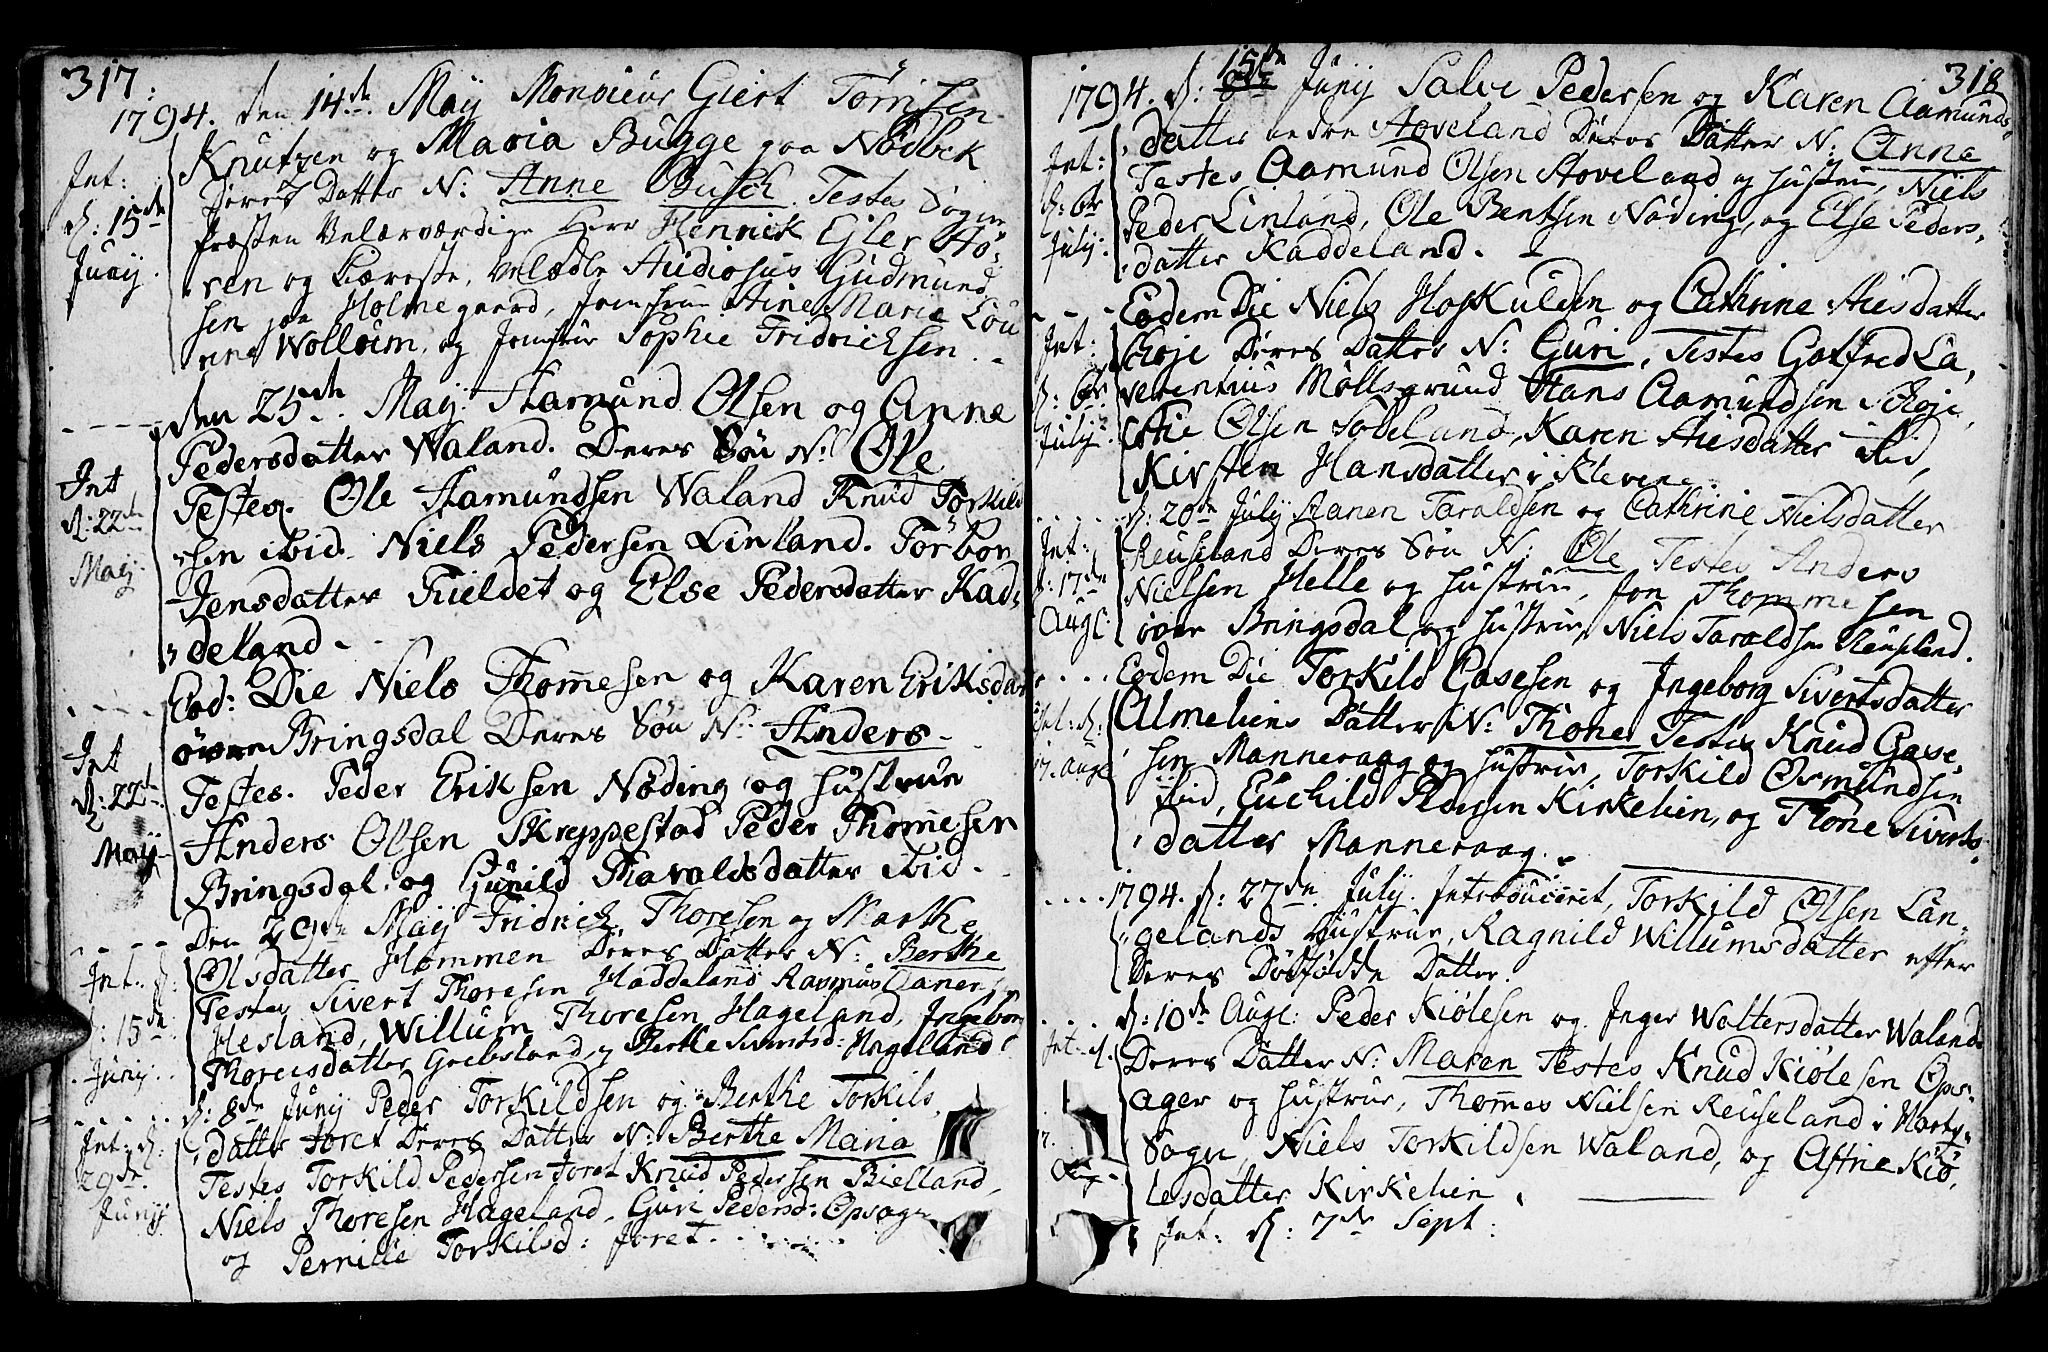 317.
1794. den 14de Maÿ Monsieur Giert Törrisen
Knutzen og Maria Bugge paa Nödbek
Deres Datter N: Anne Busch. Testes Sogne
Præsten Velærværdige Herr Henrich Ejler Stö-
ren og Kiæreste, Velædle Studiosus Gudmund
sen paa Holmegaard, Jomfrue Aine Marie Lou
rine Wolloum, og Jomfrue Sophie Fridrichsen.
Int:
d: 15de
Junij.
den 25de Maÿ. Aamund Olsen og Anne
Pedersdatter Waland. Deres Sön N: Ole
Testes. Ole Aamundsen Waland Knud Torkild
sen ibid. Niels Pedersen Linland. Torbor
Jensdatter Fieldet og Else Pedersdatter Kad-
deland.
Int
d: 22de
Maij
Eod: Die Niels Thomesen og Karen Eriksdat
övre Bringsdal Deres Sön N: Anders.
Testes. Peder Eriksen Nöding og Hustrue
Anders Olsen Skreppestad Peder Thomesen
Bringsdal. og Gunild Tharaldsdatter ibid.
Int
d: 22de
Maij
Den 29de Maij Fridrich Thoresen og Marthe
Olsdatter Hommen Deres Datter N: Berthe
Testes Sivert Thoresen Haddeland Rasmus
Hesland, Willum Thoresen Hageland, Ingebor
Thoresdatter Grebsland, og Berthe Sivertsd: Hageland
Int. d:
d: 15de
Junij
d: 8de Junij Peder Torkildsen og Berthe Torkils
datter Foret Deres Datter N: Berthe Maria
Testes Torkild Pedersen Foret Knud Pedersen Bielland,
Niels Thoresen Hageland, Guri Pedersd: Opsage
og Pernille Torkilsd: foret.
Int: d:
29de
Junij
318
1794. d: 15de Junij Salve Pedersen og Karen Aamunds-
datter nedre Stoveland Deres Datter N: Anne
Testes Aamund Olsen Stoveland og Hustrue, Niels
Peder Linland, Ole Bentsen Nöding, og Else Peders-
datter Kaddeland.
Int:
d: 6te
Julij.
Eodem Die Niels Hoskuldsen og Cathrine Stiesdatter
Deres Datter N: Guri, Testes Gotfred La-
verentius Möllsgrund Hans Aamundsen
Stie Olsen Sodeland, Karen Stiesdatter ibid,
Kirsten Hansdatter i Klevene.
Int:
d: 6te
Julij
d: 20de Julij Aanen Taraldsen og Cathrine Nielsdatter
Reuseland Deres Sön N: Ole Testes Anders
Nielsen Helle og Hustrue, Jon Thommesen
övre Bringsdal og Hustrue, Niels Taraldsen Reuseland.
Int:
d: 17de
Augl:
Eodem Die Torkild Gasesen og Ingeborg Sivertsdatter
Almelien Datter N: Thone Testes Knud Gase-
sen Manneraag og Hustrue, Torkild Osmundsen
ibid, Euchild Pedersen Kirkelien, og Thone Siverts-
datter Manneraag.
17. Augl
1794. d: 27de Julij. Introduceret, Torkild Olsen Lan-
gelands Hustrue, Ragnild Willumsdatter efter
Deres Dödfödde Datter.
d: 10de Augl: Peder Kiölesen og Inger Woltersdatter Waland
Deres Datter N: Maren Testes Knud Kiölesen Ops-
ager og Hustrue, Thomes Nielsen Reuseland i
Sogn, Niels Torkildsen Waland, og Astrie Kiö-
lesdatter Kirkelien.
Int: d:
17.
Aug
Int: d: 7de Sept: